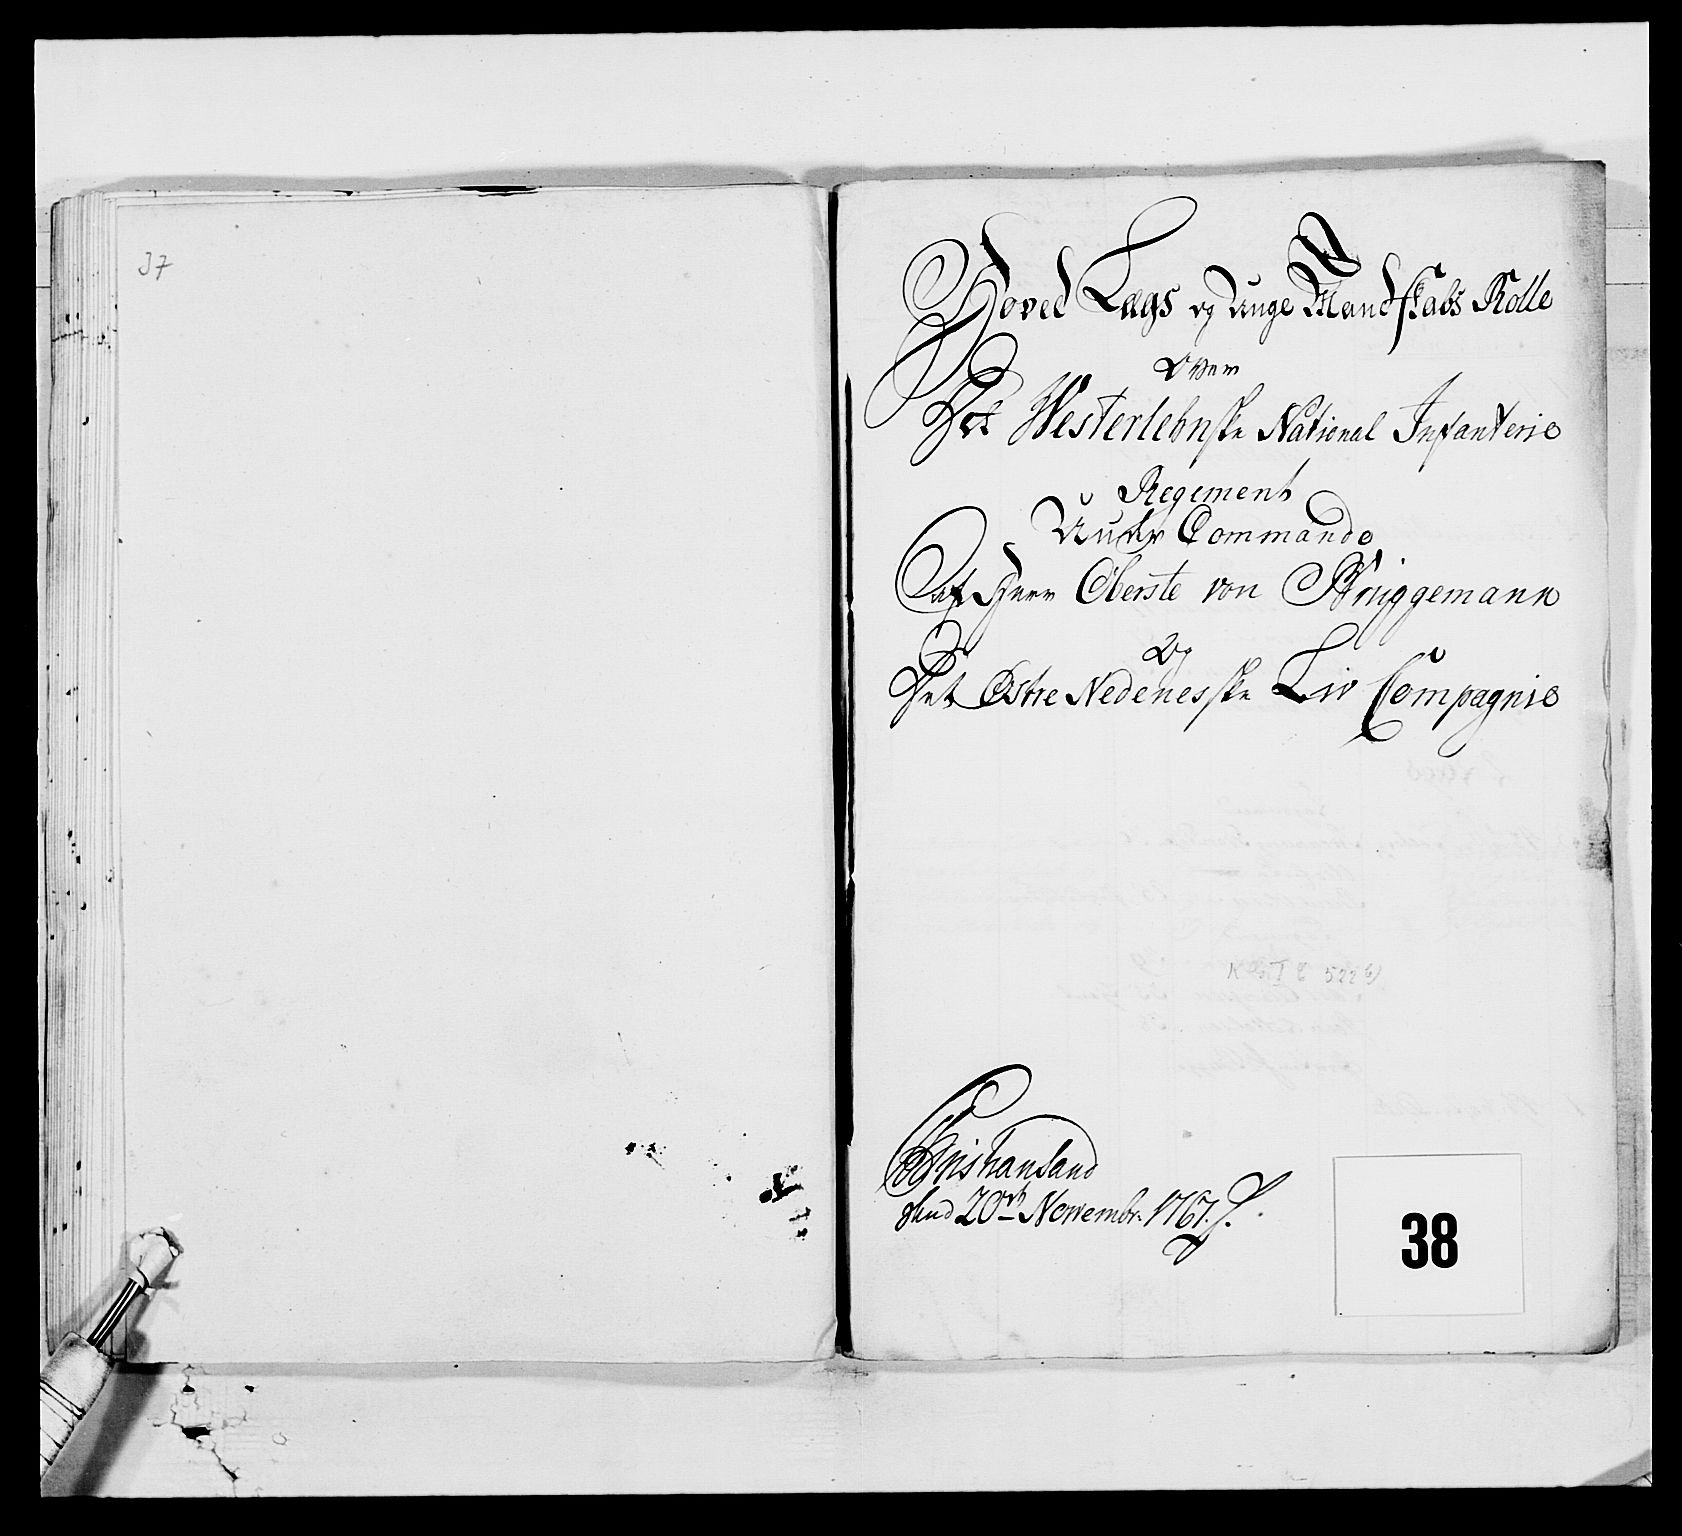 37
Hoved Lægs og Unge Mandskabs Rolle
Over
Det Westerlehnske National Infanterie
Regement
Under Commando
af Herr Oberste von Brüggemann
Og
Det Østre Nedenesske Liv Compagnie
Christiansand
d. 20de Novembr. 1767.
38